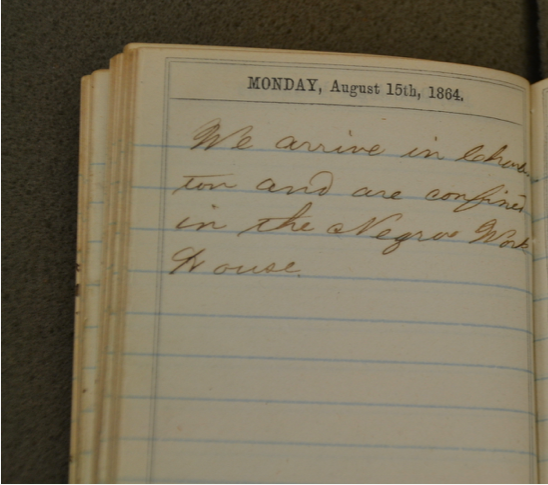 MONDAY, August 15th, 1864.
We arrive in Charles
ton and are confined
in the Negroe Work
House.